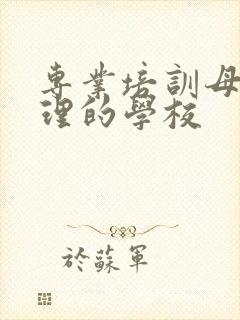 專業培訓母
理的學校
於蘇軍